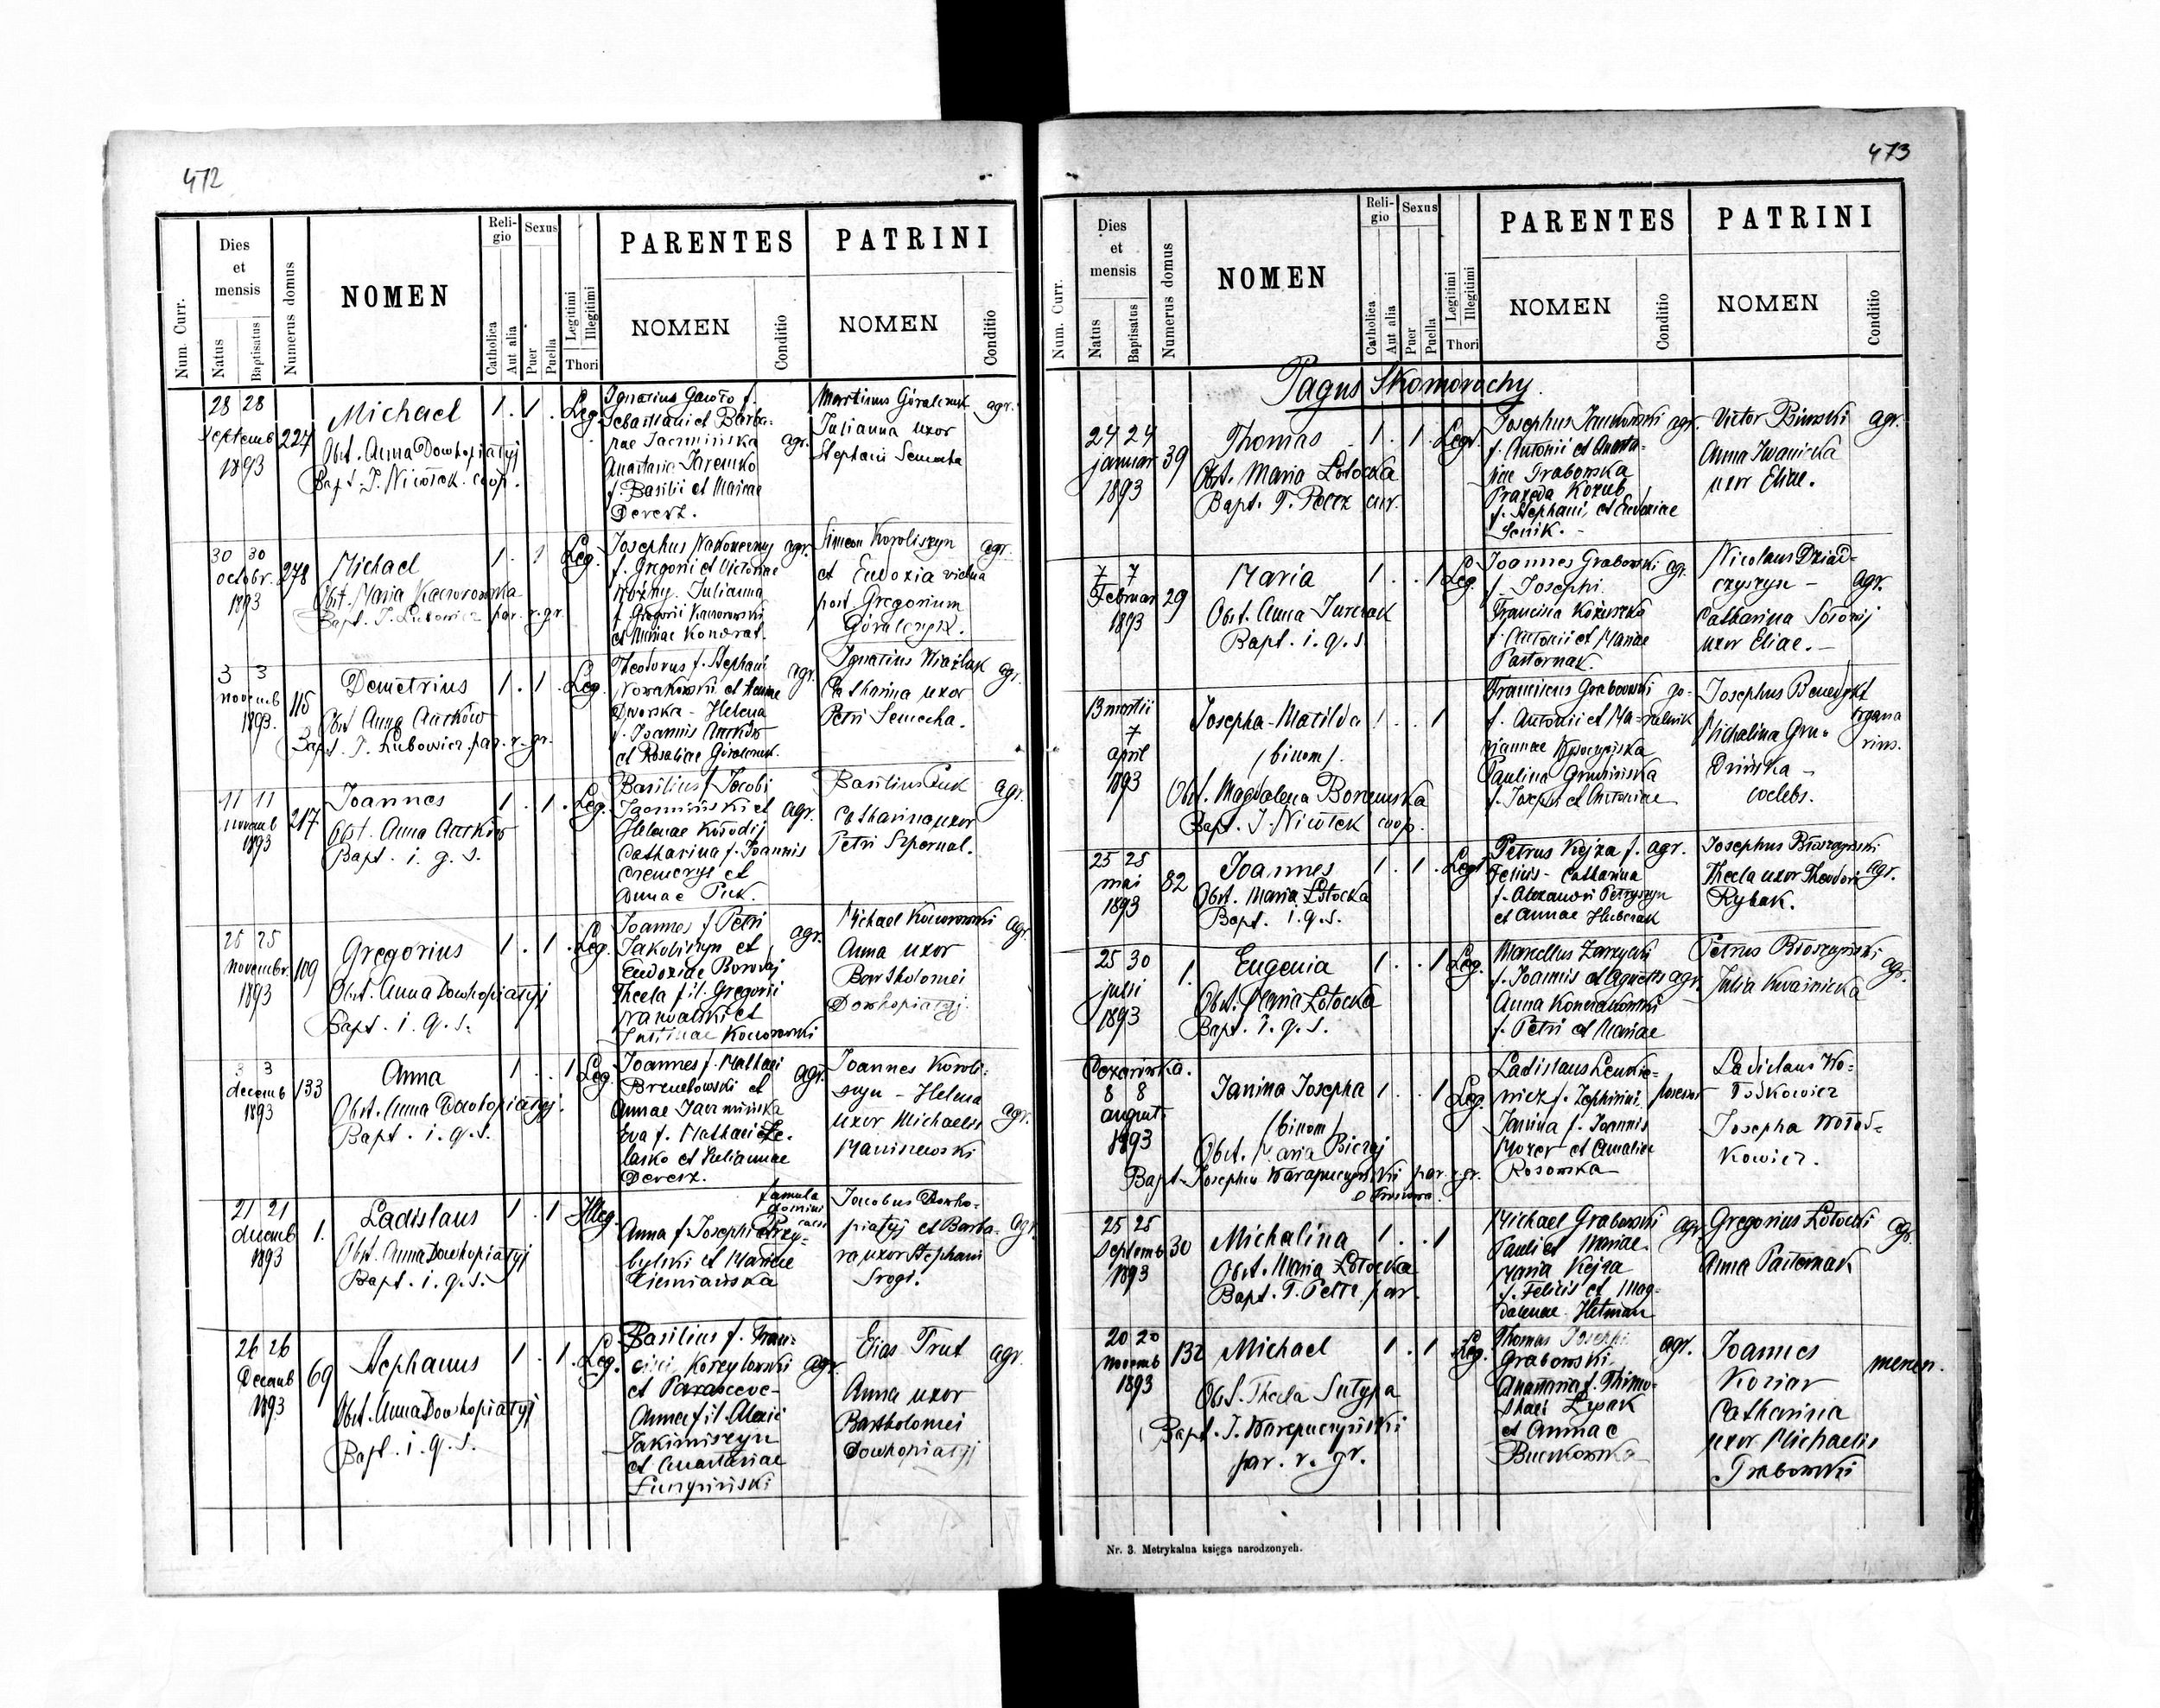 472
Num. Curr.
Dies et mensis
Natus
Baptisatus
Numerus domus
NOMEN
Religio
Catholica
Aut alia
Sexus
Puer
Puella
Legitimi
Illegitimi
Thori
PARENTES
NOMEN
Conditio
PATRINI
NOMEN
Conditio
28 28
Septemb
1893
224
Michael
Obst. Anna Dowhopiatyj
Bapt. J. Niwiok. coop.
1. 1. Leg.
Ignatius f.
Sebastiani et Barba-
rae
agr.
Anastasia Jaremko
f. Basilii et Mariae
Derecz.
Martinus Góralczuk
agr.
Julianna uxor
Stephani Semecha
30 30
octobr.
1893
278
Michael
Obst. Maria Kaczorowska
Bapt. J. Lubowicz par. r. gr.
1. 1 Leg.
Josephus Nakonecznyj agr.
f. Gregorii et Victoriae
Julianna
f. Gregorii Kaczorowski
et Mariae Kondrat.
Simeon Koroliszyn
agr.
et Eudoxia vidua
post Gregorium
Góralczyk.
3 3
novemb
1893.
115
Demetrius
Obst. Anna
Bapt. J. Lubowicz par. r. gr.
1. 1. Leg.
Theodorus f. Stephani
agr.
Nowakowski et Annae
Dworska - Helena
f. Joannis
et Rosaliae Góralczuk.
Ignatius
agr.
Catharina uxor
Petri Semecha.
11 11
novemb
1893
217
Joannes
Obst. Anna
Bapt. i. q. s.
1. 1. Leg.
Basilius f. Jacobi
et
agr.
Helenae Kołodij
Catharina f. Joannis
et
Annae Puk.
Basilius Puk
agr.
Catharina uxor
Petri Szpernal.
25 25
novembr.
1893
109
Gregorius
Obst. Anna Dowhopiatyj
Bapt. i. q. s.
1. 1. Leg.
Joannes f. Petri
agr.
Jakobiszyn et
Eudoxiae Borodaj
Thecla fil. Gregorii
et
Justinae Kaczorowski
Michael Kaczorowski
agr.
Anna uxor
Bartholomei
Dowhopiatyj.
3 3
decemb
1893
133
Anna
Obst. Anna Dowhopiatyj.
Bapt. i. q. s.
1. . 1 Leg.
Joannes f. Mathaei
agr.
et
Annae
Eva f. Mathaei Ze-
lasko et Juliannae
Derecz.
Joannes Koroli-
szyn - Helena
uxor Michaelis
agr.
Maniszewski
21 21
decemb
1893
1.
Ladislaus
Obst. Anna Dowhopiatyj
Bapt. i. q. s.
1. 1 Illeg.
famula
domini
Anna f. Josephi Przy-
bylski et Mariae
Ziemiańska
Jacobus Dowho-
piatyj et Barba-
agr.
ra uxor Stephani
Srogi.
26 26
Decemb
1893
69
Stephanus
Obst. Anna Dowhopiatyj
Bapt. i. q. s.
1. 1. Leg.
Basilius f. Fran-
cisci
agr.
et Parasceve-
Anna fil. Alexii
Jakimiszyn
et Anastasiae
Elias Trut
agr.
Anna uxor
Bartholomei
Dowhopiatyj
473
Num. Curr.
Dies et mensis
Natus
Baptisatus
Numerus domus
NOMEN
Religio
Catholica
Aut alia
Sexus
Puer
Puella
Legitimi
Illegitimi
Thori
PARENTES
NOMEN
Conditio
PATRINI
NOMEN
Conditio
Pagus Skomorochy.
24 24
januar
1893
39
Thomas
Obst. Maria Lotocka
Bapt. T. Peltz cur.
1. 1. Leg.
Josephus Jankowski agr.
f. Antonii et Anasta-
siae Grabowska
Praxeda Kozub
f. Stephani, et Eudoxiae
Senik. -
Victor Binski
agr.
Anna Iwanicka
uxor Eliae.
7 7
Februar
1893
29
Maria
Obst. Anna Jurczak
Bapt. i. q. s.
1. . 1 Leg.
Joannes Grabowski ag.
f. Josephi.
Francisca
f. Antonii et Mariae
Pasternak.
Nicolaus Dziad-
czyszyn -
agr.
Catharina
uxor Eliae. -
13 martii
7
april
1893
Josepha-Matilda
(binom).
Obst. Magdalena
Bapt. J. Niwiok coop.
1. . 1
Franciscus Grabowski go-
f. Antonii et Ma-
rzelnik
riannae
Paulina Grudzińska
f. Josephi et Antoniae
Josephus Benedykt
organa
rius.
Michalina Gru-
dzińska -
coelebs.
25 25
mai
1893
82
Joannes
Obst. Maria Lotocka
Bapt. i. q. s.
1. 1. Leg.
Petrus Kejza f. agr.
Felicis - Catharina
f. Alexandri Petryszyn
et Annae Hubczak
Josephus Błaszczyński
agr.
Thecla uxor Theodori
Rybak.
25 30
julii
1893
1.
Eugenia
Obst. Maria Lotocka
Bapt. i. q. s.
1. . 1 Leg.
Marcellus Zarzycki
f. Joannis et Agnetis agr.
Anna
f. Petri et Mariae
Petrus Błaszczyński
agr.
Julia Kwaśnicka
8 8
august
1893
Janina Josepha
(binom)
Obst. Maria
Bapt. Josephus Warapuczyński par. r. gr.
1. . 1 Leg.
Ladislaus Lenkie-
wicz f. Zephirini. possessor
Janina f. Joannis
Mozer et Amaliae
Rosowska
Ladislaus Wo-
łodkowicz
Josepha Wołod-
kowicz.
25 25
Septemb
1893
30
Michalina
Obst. Maria Lotocka
Bapt. T. Peltz par.
1. . 1
Michael Grabowski
agr
Pauli et Mariae.
Maria Kejza
f. Felicis et Mag-
dalenae Hetman
Gregorius Lotocki
agr.
Anna Pasternak
20 20
Novemb
1893
132
Michael
Obst. Thecla Sutyła
Bapt. J. Warapuczyński
par. r. gr.
1. 1 Leg.
Thomas Josephi
agr.
Grabowski.
Anastasia f. Thimo-
thaei Łysak
et Annae
Buczkowska
Joannes
Koziar
Catharina
uxor Michaelis
Grabowski
Nr. 3. Metrykalna księga narodzonych.